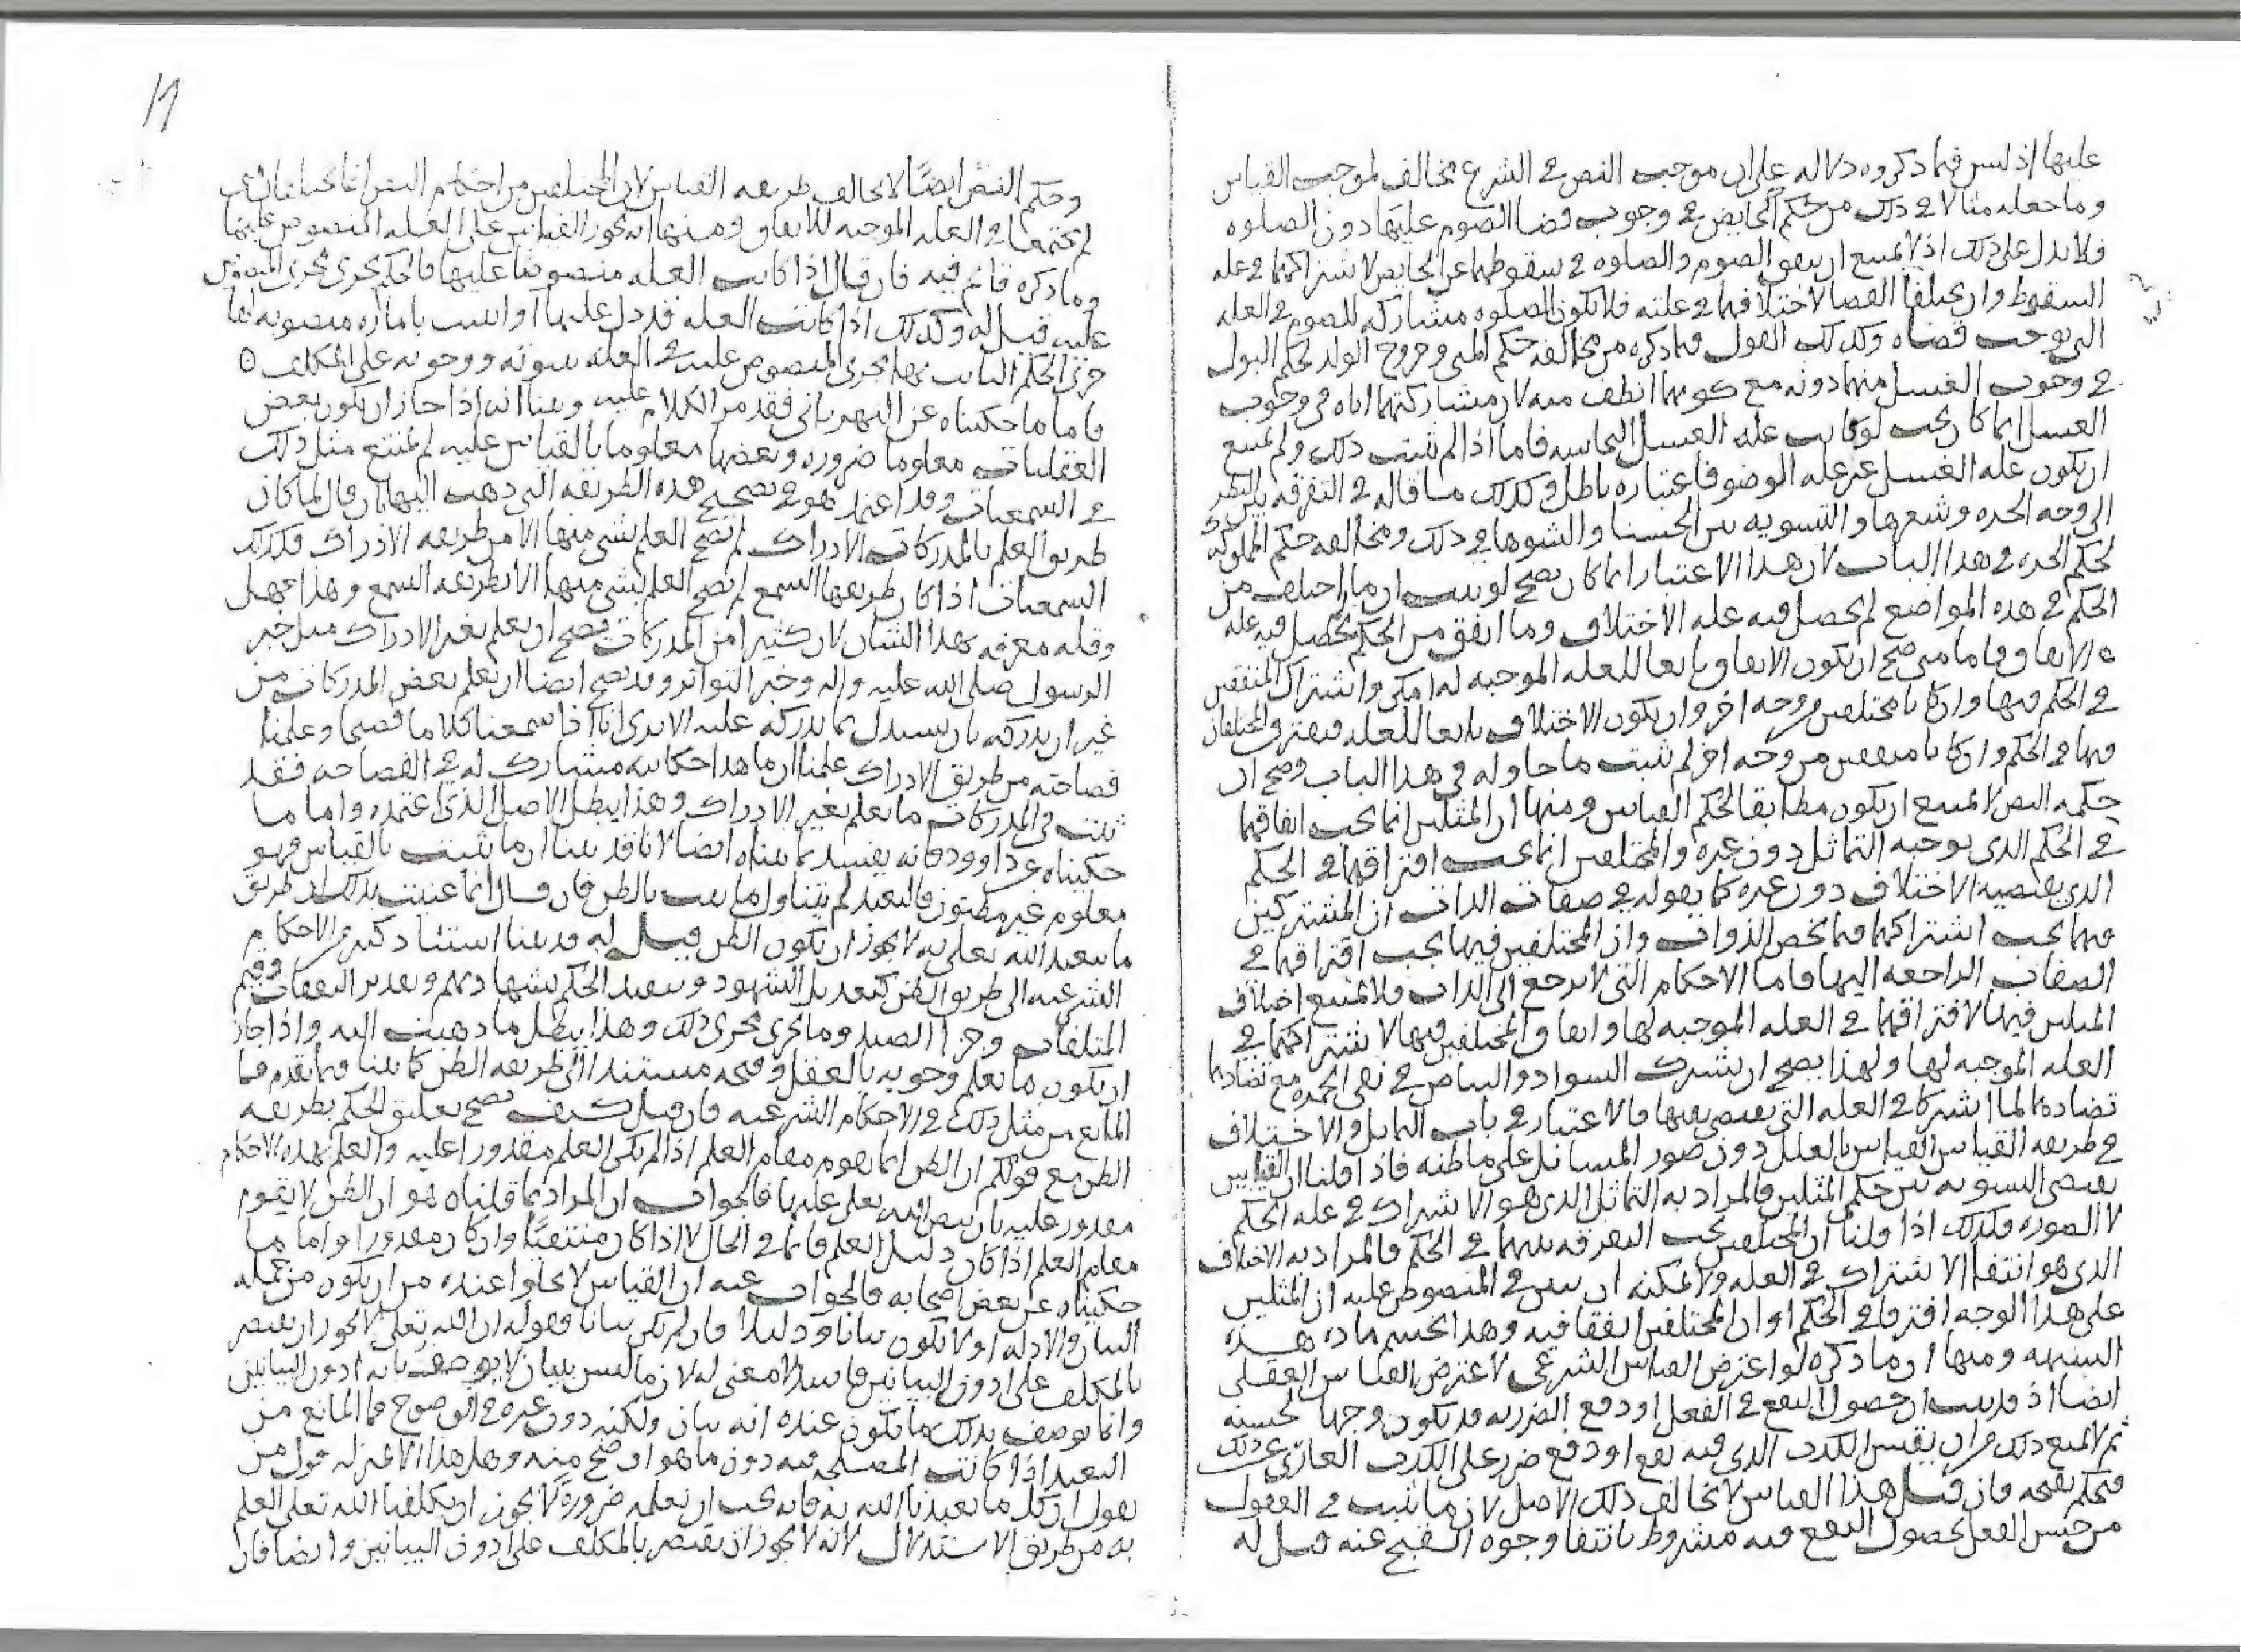 عليها اذ ليس فيما ذكروه دلاله على ان موجب النص في الشرع مخالف لموجب القياس
وما جعله مثالا في ذلك من حكم الحايض في وجوب قضا الصوم عليها دون الصلوه
فلا يدل على ذلك اذ لا يمتنع ان يتفق الصوم والصلوه في سقوطهما عن الحايض لاشتراكهما في عله
السقوط وان يختلفا القضا لاختلافهما في علته فلا تكون الصلوه مشاركه للصوم في العله
التي توجب قضاه وكذلك القول فيما ذكره من مخالفه حكم المني وخروج الولد لحكم البول
في وجوب الغسل منهما دونه مع كونهما انظف منه لان مشاركتهما اياه في وجوب
الغسل انما كان يجب لو كانت عله الغسل النجاسه فاما اذا لم يثبت ذلك ولم يمتنع
ان يكون عله الغسل غير عله الوضو فاعتباره باطل وكذلك ما قاله في التفرقه بين النظر
الى وجه الحره وشعرها والتسويه بين الحسنا والشوها في ذلك ومخالفه حكم المملوكه
لحكم الحره في هذا الباب لان هذا الاعتبار انما كان يصح لو ثبت ان ما اختلف من
الحكم في هذه المواضع لم يحصل فيه عله الاختلاف وما اتفق من الحكم يحصل فيه عله
الاتفاق فاما متى صح ان يكون الاتفاق تابعا للعله الموجبه له امكن واشتراك المتفقين
في الحكم فيها وان كانا مختلفين من وجه اخر وان يكون الاختلاف تابعا للعله فيفترق المختلفان
فيها في الحكم وان كانا متفقين من وجه اخر لم يثبت ما حاوله في هذا الباب وصح ان
حكمه النص لا يمتنع ان يكون مطابقا لحكم القياس ومنها ان المثلين انما يجب اتفاقهما
في الحكم الذي يوجبه التماثل دون غيره والمختلفين انما يجب افتراقهما في الحكم
الذي يقتضيه الاختلاف دون غيره كما يقوله في صفات الذات ان المشتركين
فيها يجب اشتراكهما فيما يخص الذوات وان المختلفين فيها يجب افتراقهما في
الصفات الراجعه اليها فاما الاحكام التي لا ترجع الى الذات فلا يمتنع اختلاف
المثلين فيها لافتراقهما في العله الموجبه لها واتفاق المختلفين فيها لاشتراكهما في
العله الموجبه لها ولهذا يصح ان يشترك السواد والبياض في نفي الحمره مع تضادهما
تضادهما لما اشتركا في العله التي تقتضي نفيها فالاعتبار في باب التماثل والاختلاف
في طريقه القياس القياس بالعلل دون صور المسائل على ما ظنه فاذا قلنا ان القياس
يقتضي التسويه بين حكم المثلين فالمراد به التماثل الذي هو الاشتراك في عله الحكم
لا الصوره وكذلك اذا قلنا ان المختلفين يجب التفرقه بينهما في الحكم فالمراد به الاختلاف
الذي هو انتفا الاشتراك في العله ولا يمكنه ان يبين في المنصوص عليه ان المثلين
على هذا الوجه افترقا في الحكم او ان المختلفين اتفقا فيه وهذا يحسم ماده هذه
الشبهه ومنها ان ما ذكره لو اعترض القياس الشرعي لاعترض القياس العقلي
ايضا اذ قد ثبت ان حصول النفع في الفعل او دفع الضرر به قد يكون وجها لحسنه
ثم لا يمنع ذلك من ان يقيس الكذب الذي فيه نفع او دفع ضرر على الكذب العاري عن ذلك
فيحكم بقبحه فان قيل هذا القياس لا يخالف ذلك الاصل لان ما ثبت في العقول
من حسن الفعل لحصول النفع فيه مشروط بانتفا وجوه القبح عنه قيل له
١٩
وحكم النص ايضا لا يخالف طريقه القياس لان المختلفين من احكام النص انما يختلفان
لم يجتمعا في العله الموجبه للاتفاق ومنها انه يجوز القياس على العله المنصوص عليها
وما ذكره قائم فيه فان قال اذا كانت العله منصوصا عليها فالحكم يجري مجرى المنصوص
عليه قيل له وكذلك اذا كانت العله قد دل عليها او اثبت باماره منصوبه لها
جرى الحكم الثابت بها مجرى المنصوص عليه في العله ثبوته ووجوبه على المكلف ه
فاما ما حكيناه عن النهرباني فقد مر الكلام عليه وبينا انه اذا جاز ان يكون بعض
العقليات معلوما ضروره وبعضها معلوما بالقياس عليه لم يمتنع مثل ذلك
في السمعيات وقد اعتمد هو في تصحيح هذه الطريقه التي ذهب اليها بان قال لما كان
طريق العلم بالمدركات الادراك لم يصح العلم بشي منها الا من طريقه الادراك فكذلك
السمعيات اذا كان طريقها السمع لم يصح العلم بشي منها الا بطريقه السمع وهذا جهل
وقله معرفه بهذا الشان لان كثيرا من المدركات يصح ان يعلم بغير الادراك مثل خبر
الرسول صلى الله عليه واله وخبر التواتر وقد يصح ايضا ان يعلم بعض المدركات من
غير ان يدركه بان يستدل بما يدركه عليه الا ترى انا اذا سمعنا كلاما فصيحا وعلمنا
فصاحته من طريق الادراك علمنا ان ما هذا حكايته مشارك له في الفصاحه فقد
ثبت في المدركات ما يعلم بغير الادراك وهذا يبطل الاصل الذي اعتمده واما ما
حكيناه عن داوود فانه يفسد بما بيناه ايضا لانا قد بينا ان ما يثبت بالقياس فهو
معلوم غير مظنون فالتعبد لم يتناول ما يثبت بالظن فان قال انما عنيت بذلك ان طريق
ما تعبد الله تعلى به لا يجوز ان يكون الظن قيل له قد بينا استناد كثير من الاحكام
الشرعيه الى طريق الظن كتعديل الشهود وتنفيذ الحكم بشهادتهم وتقدير النفقات وقيم
المتلفات وجزا الصيد وما جرى مجرى ذلك وهذا يبطل ما ذهبت اليه واذا جاز
ان يكون ما يعلم وجوبه بالعقل وقبحه مستندا الى طريقه الظن كما بينا فيما تقدم فما
المانع من مثل ذلك في الاحكام الشرعيه فان قيل كيف يصح تعليق الحكم بطريقه
الظن مع قولكم ان الظن انما يقوم مقام العلم اذا لم يكن العلم مقدورا عليه والعلم بهذه الاحكام
مقدور عليه بان ينص الله تعلى عليها فالجواب ان المراد بما قلناه هو ان الظن لا يقوم
مقام العلم اذا كان دليل العلم قائما في الحال لا اذا كان منتفيا وان كان مقدورا واما ما
حكيناه عن بعض اصحابه فالجواب عنه ان القياس لا يخلوا عنده من ان يكون من جمله
البيان والادله او لا يكون بيانا ودليلا فان لم يكن بيانا فقوله ان الله تعلى لا يجوز ان يقتصر
بالمكلف على ادون البيانين فاسد لا معنى له لان ما ليس ببيان لا يوصف بانه ادون البيانين
وانما يوصف بذلك ما يكون عنده انه بيان ولكنه دون غيره في الوضوح فما المانع من
التعبد اذا كانت المصلحه فيه دون ما هو اوضح منه وهل هذا الا بمنزله قول من
يقول ان كل ما تعبدنا الله به فانه يجب ان نعلمه ضروره ولا يجوز ان يكلفنا الله تعلى العلم
به من طريق الاستدلال لانه لا يجوز ان يقتصر بالمكلف على ادون البيانين وايضا فان